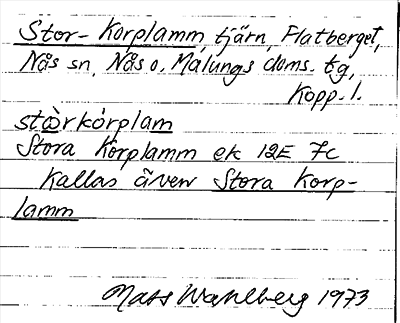 Stor-Korplamm, tjärn, Flatberget,
Nås sn, Nås o. Malungs doms. tg,
Kopp. l.
stòrkórplam
Stora Korplamm ek 12E 7c
Kallas även Stora Korp-
lamm
Mats Wahlberg 1973